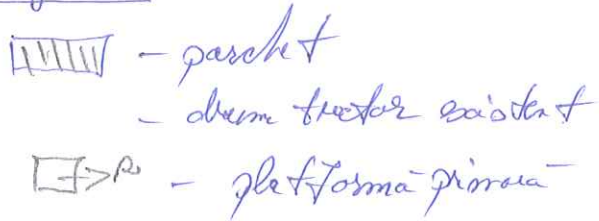 - parchet
- drum tractor existent
- platformă primară